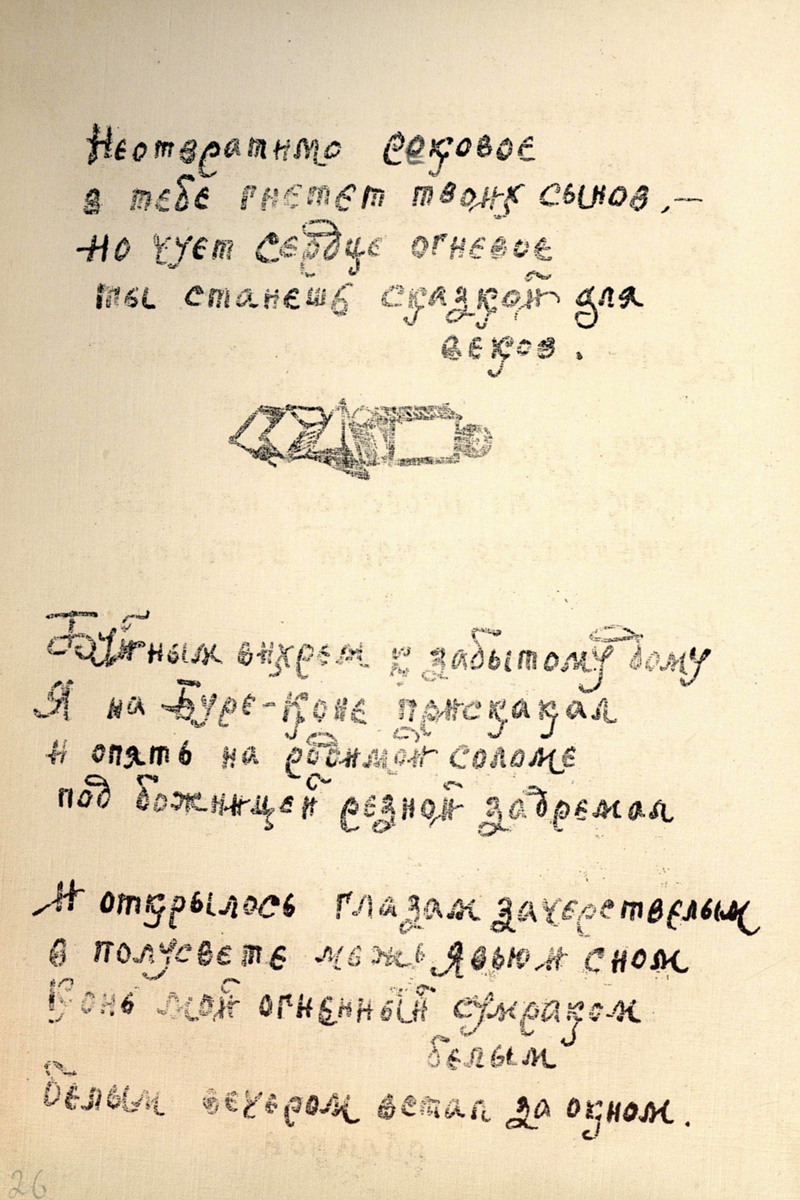 Неотвратимо роковое
в тебе гнетет твоих сынов, —
но чует сердце огневое
ты станешь сказкой для
веков.
Буйным вихрем к забытому дому
Я на Буре-Коне прискакал
и опять на родимой соломе
под божницей резной задремал
И открылось глазам зачерствелым
в полусвете межь явью и сном
Конь мой огненный сумраком
белым
белым вечером встал за окном.
26